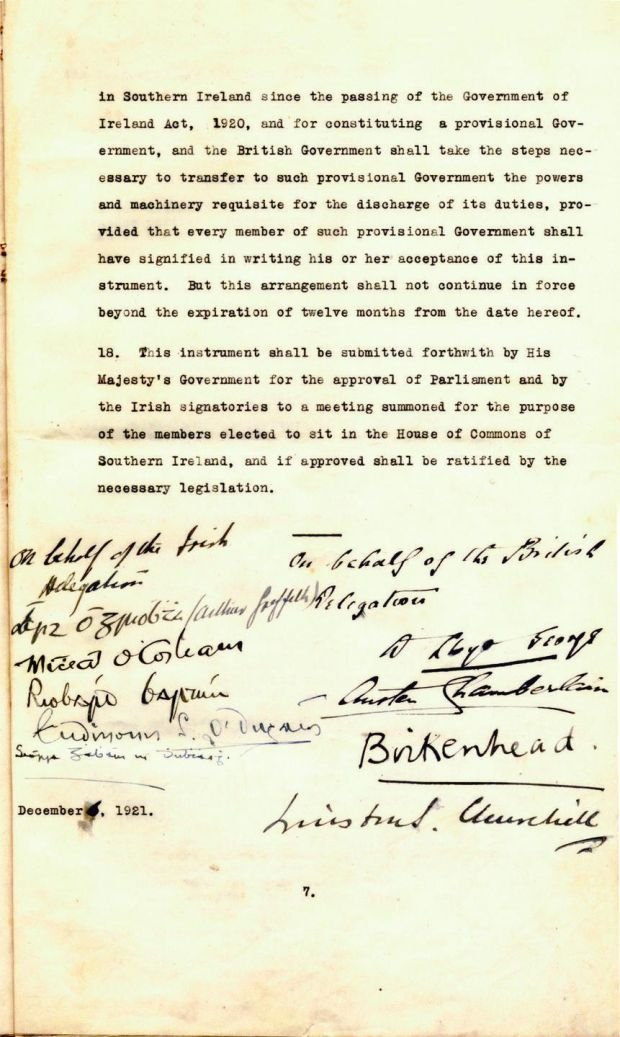 in Southern Ireland since the passing of the Government of
Ireland Act, 1920, and for constituting a provisional Gov-
ernment, and the British Government shall take the steps nec-
essary to transfer to such provisional Government the powers
and machinery requisite for the discharge of its duties, pro-
vided that every member of such provisional Government shall
have signified in writing his or her acceptance of this in-
strument. But this arrangement shall not continue in force
beyond the expiration of twelve months from the date hereof.
18. This instrument shall be submitted forthwith by His
Majesty's Government for the approval of Parliament and by
the Irish signatories to a meeting summoned for the purpose
of the members elected to sit in the House of Commons of
Southern Ireland, and if approved shall be ratified by the
necessary legislation.
On behalf of the Irish
Delegation
Art Ó Gríobhtha (Arthur Griffith)
Mícheál Ó Coileáin
Riobárd Bartún
S. Ó Dúgáin
December 6, 1921.
On behalf of the British
Delegation
D Lloyd George
Austen Chamberlain
Birkenhead.
Winston S. Churchill
7.